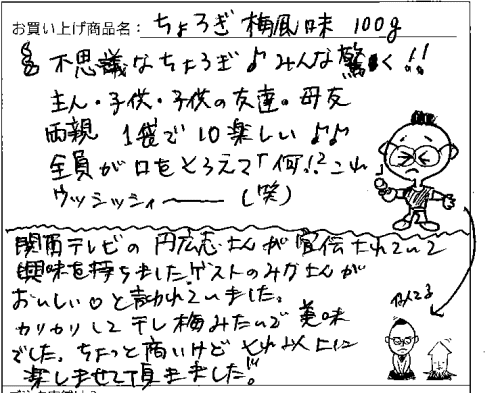 お買い上げ商品名：ちょろぎ 梅風味 100g
不思議なちょろぎ♪みんな驚く!!
主人・子供・子供の友達。母友
両親 1袋で10楽しい♪♪
全員が口をそろえて「何!?これ
ウッシッシィ―――(笑)
関西テレビの円広志さんが宣伝されていて
興味を持ちました。ゲストのみかさんが
おいしい♡と言われていました。
カリカリして干し梅みたいで美味
でした。ちょっと高いけどそれ以上に
楽しませて頂きました!!
似てる